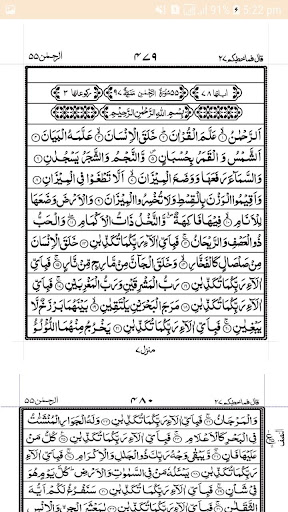 5:22 pm
قال فما خطبكم ٢٧ ۴۷۹ الرحمن ۵۵
اٰیاتها ۷۸ ۵۵ سُوْرَةُ الرَّحْمٰنِ مَدَنِيَّةٌ ۹۷ رکوعاتها ۳
بِسْمِ اللّٰهِ الرَّحْمٰنِ الرَّحِيْمِ
اَلرَّحْمٰنُ ۝ عَلَّمَ الْقُرْاٰنَ ۝ خَلَقَ الْاِنْسَانَ ۝ عَلَّمَهُ الْبَيَانَ ۝
اَلشَّمْسُ وَ الْقَمَرُ بِحُسْبَانٍ ۝ وَّالنَّجْمُ وَ الشَّجَرُ يَسْجُدٰنِ ۝
وَالسَّمَآءَ رَفَعَهَا وَوَضَعَ الْمِيْزَانَ ۝ اَلَّا تَطْغَوْا فِي الْمِيْزَانِ ۝
وَاَقِيْمُوا الْوَزْنَ بِالْقِسْطِ وَلَا تُخْسِرُوا الْمِيْزَانَ ۝ وَالْاَرْضَ وَضَعَهَا
لِلْاَنَامِ ۝ فِيْهَا فَاكِهَةٌ وَّالنَّخْلُ ذَاتُ الْاَكْمَامِ ۝ وَالْحَبُّ
ذُو الْعَصْفِ وَالرَّيْحَانُ ۝ فَبِاَيِّ اٰلَآءِ رَبِّكُمَا تُكَذِّبٰنِ ۝ خَلَقَ الْاِنْسَانَ
مِنْ صَلْصَالٍ كَالْفَخَّارِ ۝ وَخَلَقَ الْجَآنَّ مِنْ مَّارِجٍ مِّنْ نَّارٍ ۝ فَبِاَيِّ
اٰلَآءِ رَبِّكُمَا تُكَذِّبٰنِ ۝ رَبُّ الْمَشْرِقَيْنِ وَرَبُّ الْمَغْرِبَيْنِ ۝ فَبِاَيِّ
اٰلَآءِ رَبِّكُمَا تُكَذِّبٰنِ ۝ مَرَجَ الْبَحْرَيْنِ يَلْتَقِيٰنِ ۝ بَيْنَهُمَا بَرْزَخٌ لَّا
يَبْغِيٰنِ ۝ فَبِاَيِّ اٰلَآءِ رَبِّكُمَا تُكَذِّبٰنِ ۝ يَخْرُجُ مِنْهُمَا اللُّؤْلُؤُ
منزل ۷
قال فما خطبكم ٢٧ ۴۸۰ الرحمن ۵۵
وَالْمَرْجَانُ ۝ فَبِاَيِّ اٰلَآءِ رَبِّكُمَا تُكَذِّبٰنِ ۝ وَلَهُ الْجَوَارِ الْمُنْشَئٰتُ
فِي الْبَحْرِ كَالْاَعْلَامِ ۝ فَبِاَيِّ اٰلَآءِ رَبِّكُمَا تُكَذِّبٰنِ ۝ كُلُّ مَنْ
عَلَيْهَا فَانٍ ۝ وَّيَبْقٰى وَجْهُ رَبِّكَ ذُو الْجَلٰلِ وَالْاِكْرَامِ ۝ فَبِاَيِّ
اٰلَآءِ رَبِّكُمَا تُكَذِّبٰنِ ۝ يَسْئَلُهٗ مَنْ فِي السَّمٰوٰتِ وَالْاَرْضِ كُلَّ يَوْمٍ هُوَ
فِيْ شَاْنٍ ۝ فَبِاَيِّ اٰلَآءِ رَبِّكُمَا تُكَذِّبٰنِ ۝ سَنَفْرُغُ لَكُمْ اَيُّهَ